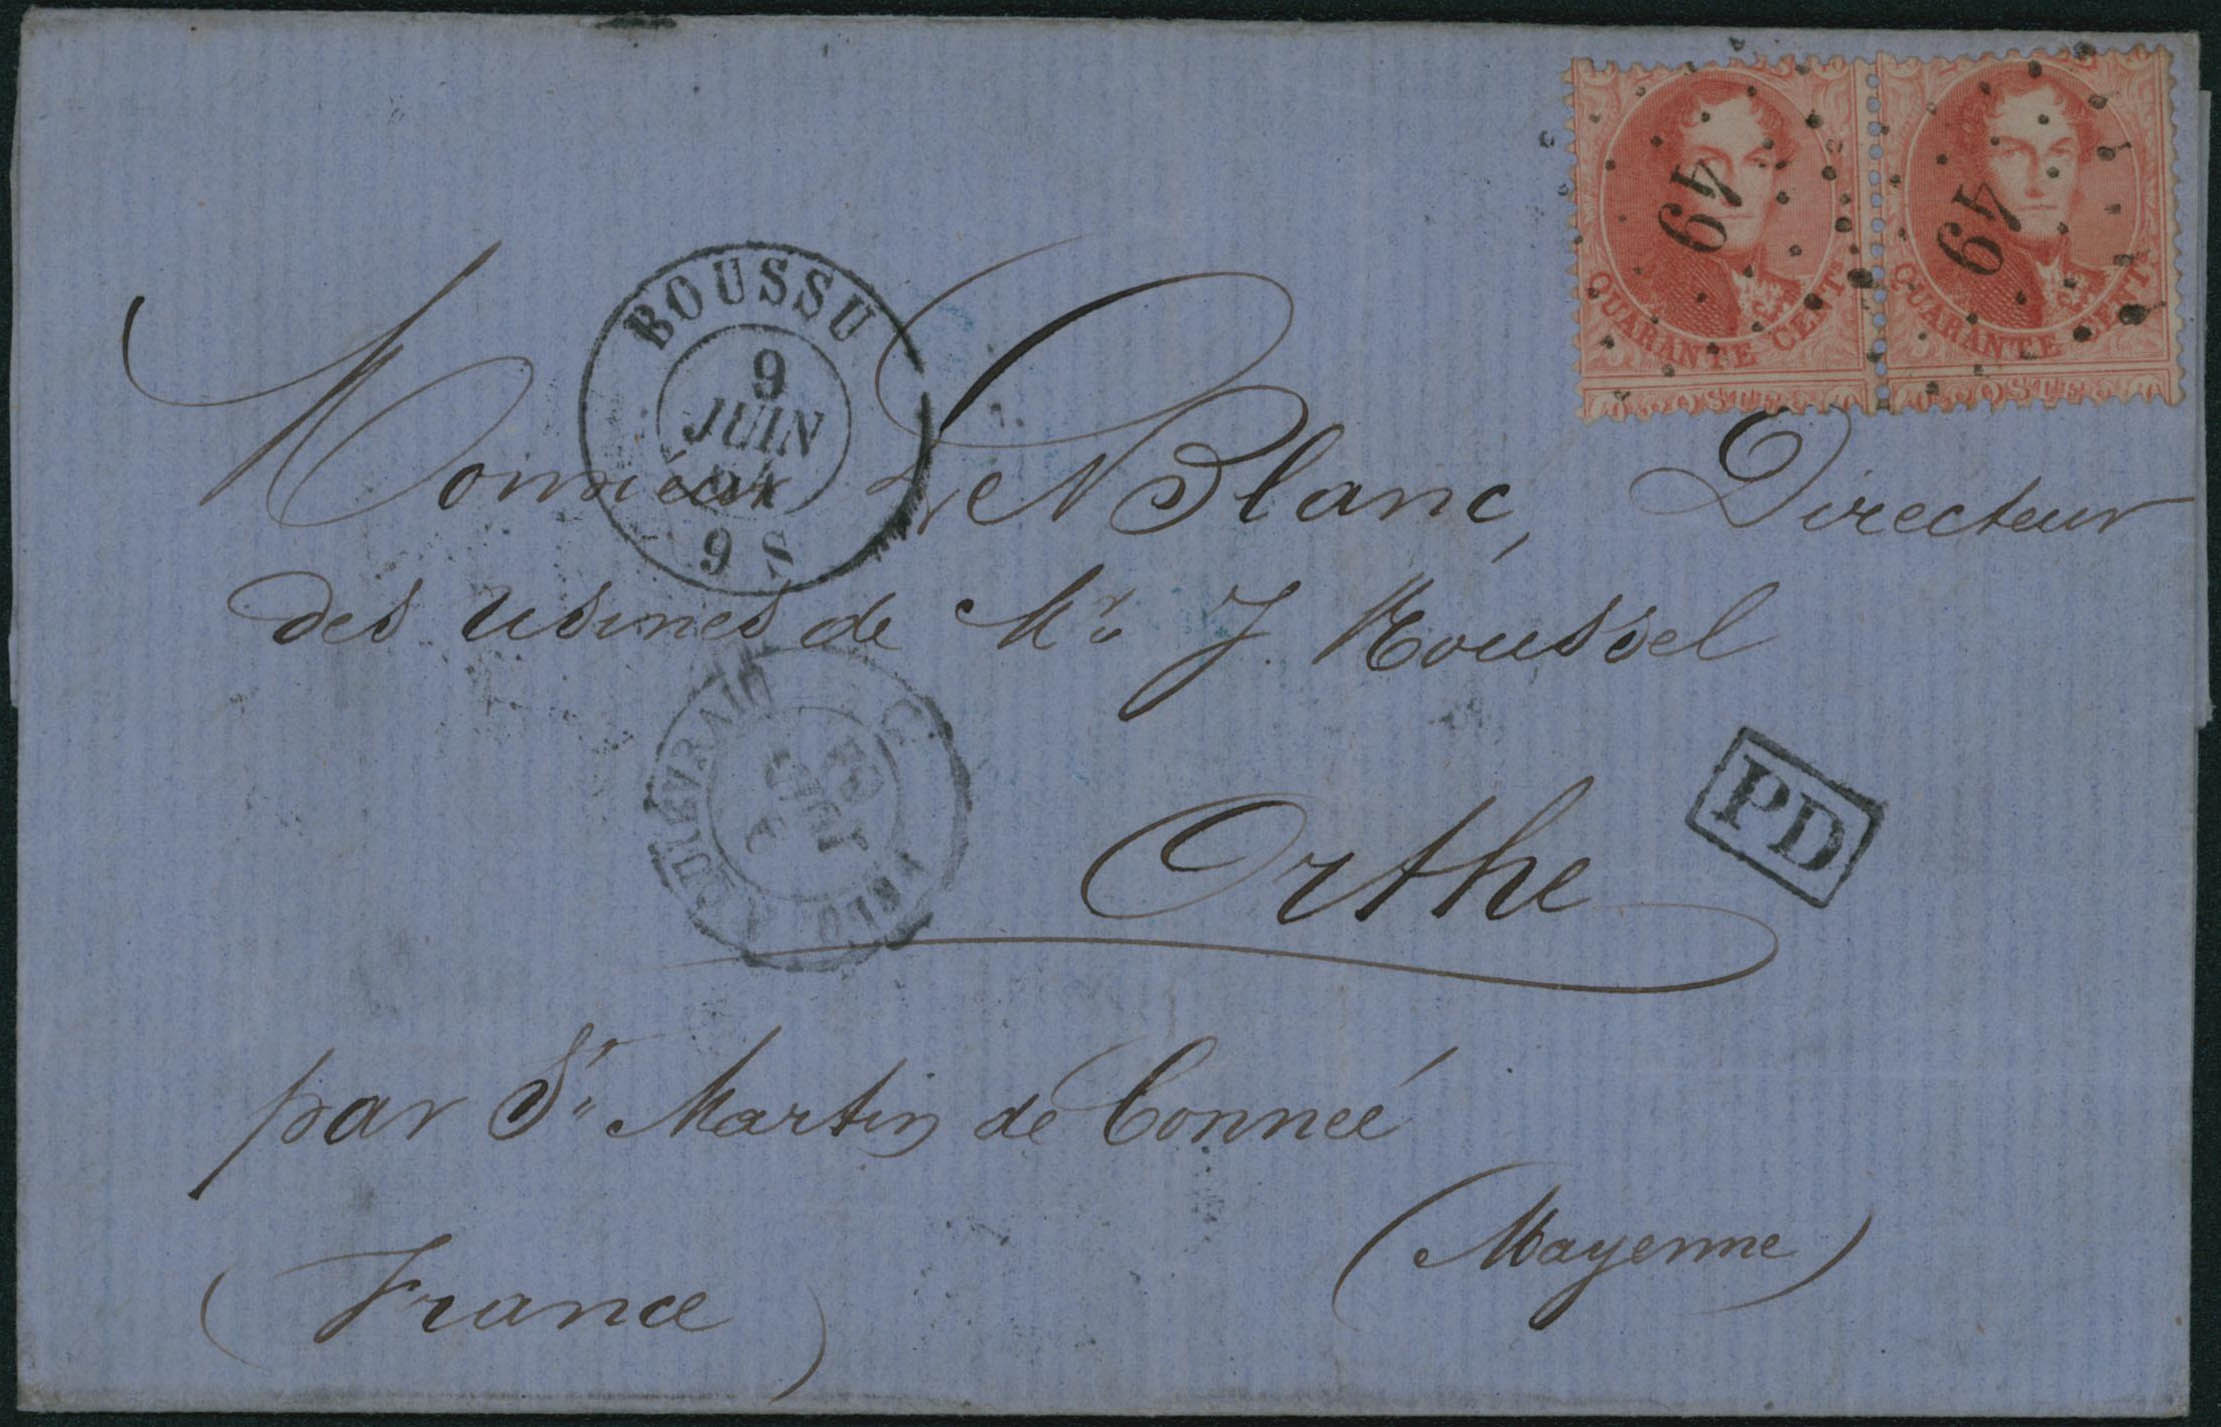 49
49
QUARANTE CENTS
QUARANTE CENTS
BOUSSU
9
JUIN
64
9 S
Monsieur Le Blanc, Directeur
des usines de Mr. J. Roussel
QUIÉVRAIN
JUIN
PD
Orthe
par St. Martin de Connée
(Mayenne)
(France)